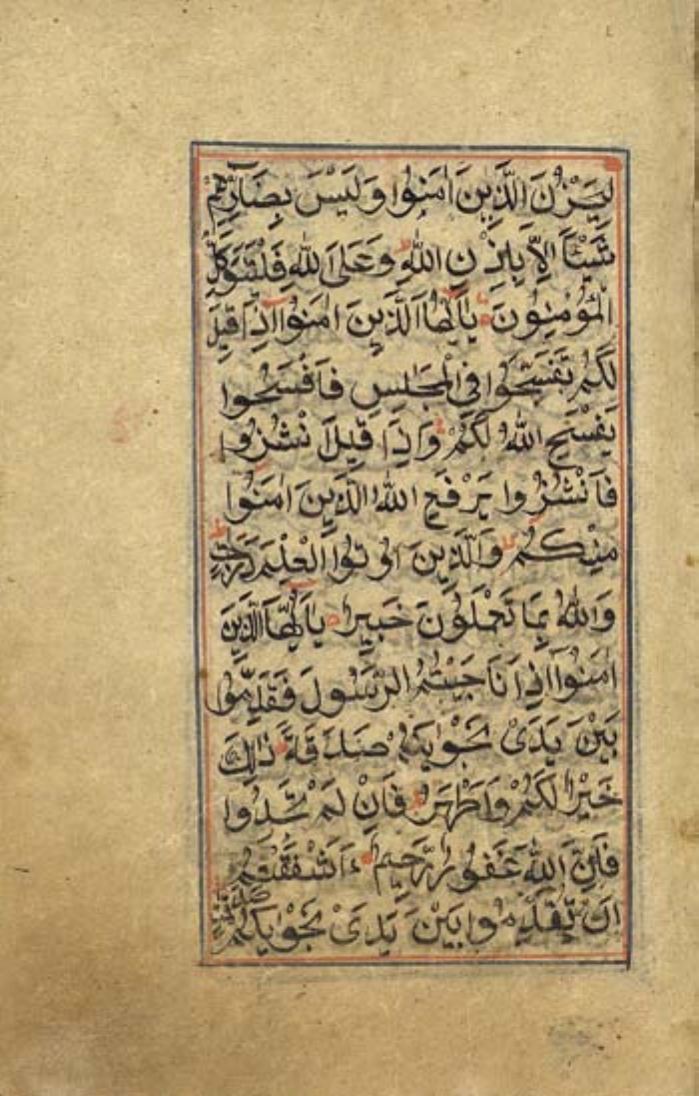 لِيَحْزُنَ الَّذِينَ اٰمَنُوا وَلَيْسَ بِضَارِّهِمْ
شَيْئًا اِلَّا بِاِذْنِ اللهِ وَعَلَى اللهِ فَلْيَتَوَكَّلِ
الْمُؤْمِنُونَ يَااَيُّهَا الَّذِينَ اٰمَنُوا اِذَا قِيلَ
لَكُمْ تَفَسَّحُوا فِي الْمَجَالِسِ فَافْسَحُوا
يَفْسَحِ اللهُ لَكُمْ وَاِذَا قِيلَ انْشُزُوا
فَانْشُزُوا يَرْفَعِ اللهُ الَّذِينَ اٰمَنُوا
مِنْكُمْ وَالَّذِينَ اُوتُوا الْعِلْمَ دَرَجَاتٍ
وَاللهُ بِمَا تَعْمَلُونَ خَبِيرٌ يَااَيُّهَا الَّذِينَ
اٰمَنُوا اِذَا نَاجَيْتُمُ الرَّسُولَ فَقَدِّمُوا
بَيْنَ يَدَىْ نَجْوٰيكُمْ صَدَقَةً ذٰلِكَ
خَيْرٌ لَكُمْ وَاَطْهَرُ فَاِنْ لَمْ تَجِدُوا
فَاِنَّ اللهَ غَفُورٌ رَحِيمٌ ءَاَشْفَقْتُمْ
اَنْ تُقَدِّمُوا بَيْنَ يَدَىْ نَجْوٰيكُمْ صَدَقَاتٍ